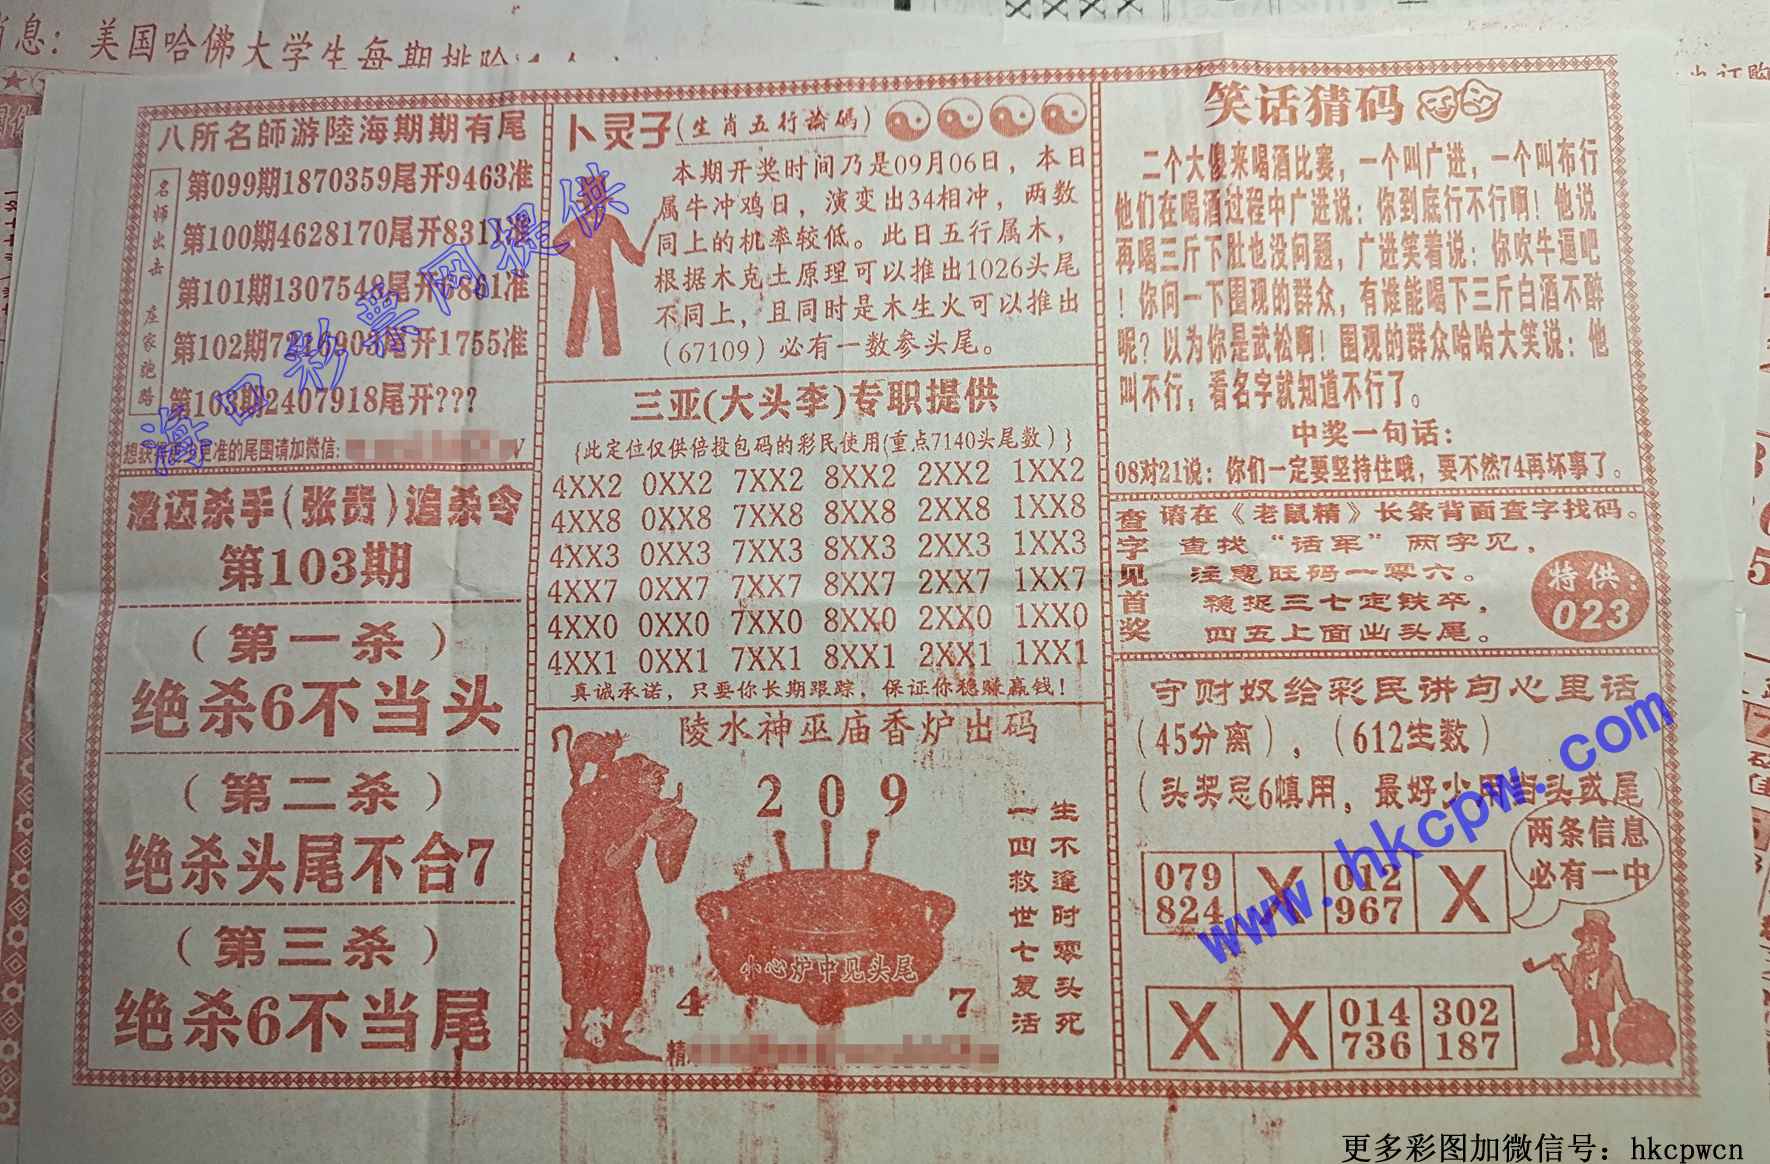 息：美国哈佛大学生每期排
八所名師游陸海期期有尾
名师出击 庄家跑路
第099期1870359尾开9463准
第100期4628170尾开8311准
第101期130754尾开861准
第102期72尾开1755准
第103期2407918尾开???
更准的尾围请加微信:
澄迈杀手(张贵)追杀令
第103期
(第一杀)
绝杀6不当头
(第二杀)
绝杀头尾不合7
(第三杀)
绝杀6不当尾
卜灵子(生肖五行論碼)
本期开奖时间乃是09月06日，本日
属牛冲鸡日，演变出34相冲，两数
同上的机率较低。此日五行属木，
根据木克土原理可以推出1026头尾
不同上，且同时是木生火可以推出
（67109）必有一数参头尾。
三亚(大头李)专职提供
{此定位仅供倍投包码的彩民使用(重点7140头尾数)}
4XX2 0XX2 7XX2 8XX2 2XX2 1XX2
4XX8 0XX8 7XX8 8XX8 2XX8 1XX8
4XX3 0XX3 7XX3 8XX3 2XX3 1XX3
4XX7 0XX7 7XX7 8XX7 2XX7 1XX7
4XX0 0XX0 7XX0 8XX0 2XX0 1XX0
4XX1 0XX1 7XX1 8XX1 2XX1 1XX1
真诚承诺，只要你长期跟踪，保证你稳赚赢钱！
陵水神巫庙香炉出码
2 0 9
小心炉中见头尾
4 7
生不逢时零头死
一四救世七复活
精
笑话猜码
二个大傻来喝酒比赛，一个叫广进，一个叫布行
他们在喝酒过程中广进说：你到底行不行啊！他说
再喝三斤下肚也没问题，广进笑着说：你吹牛逼吧
！你问一下围现的群众，有谁能喝下三斤白酒不醉
呢？以为你是武松啊！围观的群众哈哈大笑说：他
叫不行，看名字就知道不行了。
中奖一句话：
08对21说：你们一定要坚持住哦，要不然74再坏事了。
查字见首奖
请在《老鼠精》长条背面查字找码。
查找“话军”两字见，
注意旺码一零六。
稳捉三七定铁卒，
四五上面出头尾。
特供：
023
守财奴给彩民讲句心里话
（45分离），（612生数）
（头奖忌6慎用，最好少用当头或尾）
两条信息
必有一中
079 X 012 X
824 967
X X 014 302
736 187
海口彩票网提供
www.hkcpw.com
更多彩图加微信号：hkcpwcn